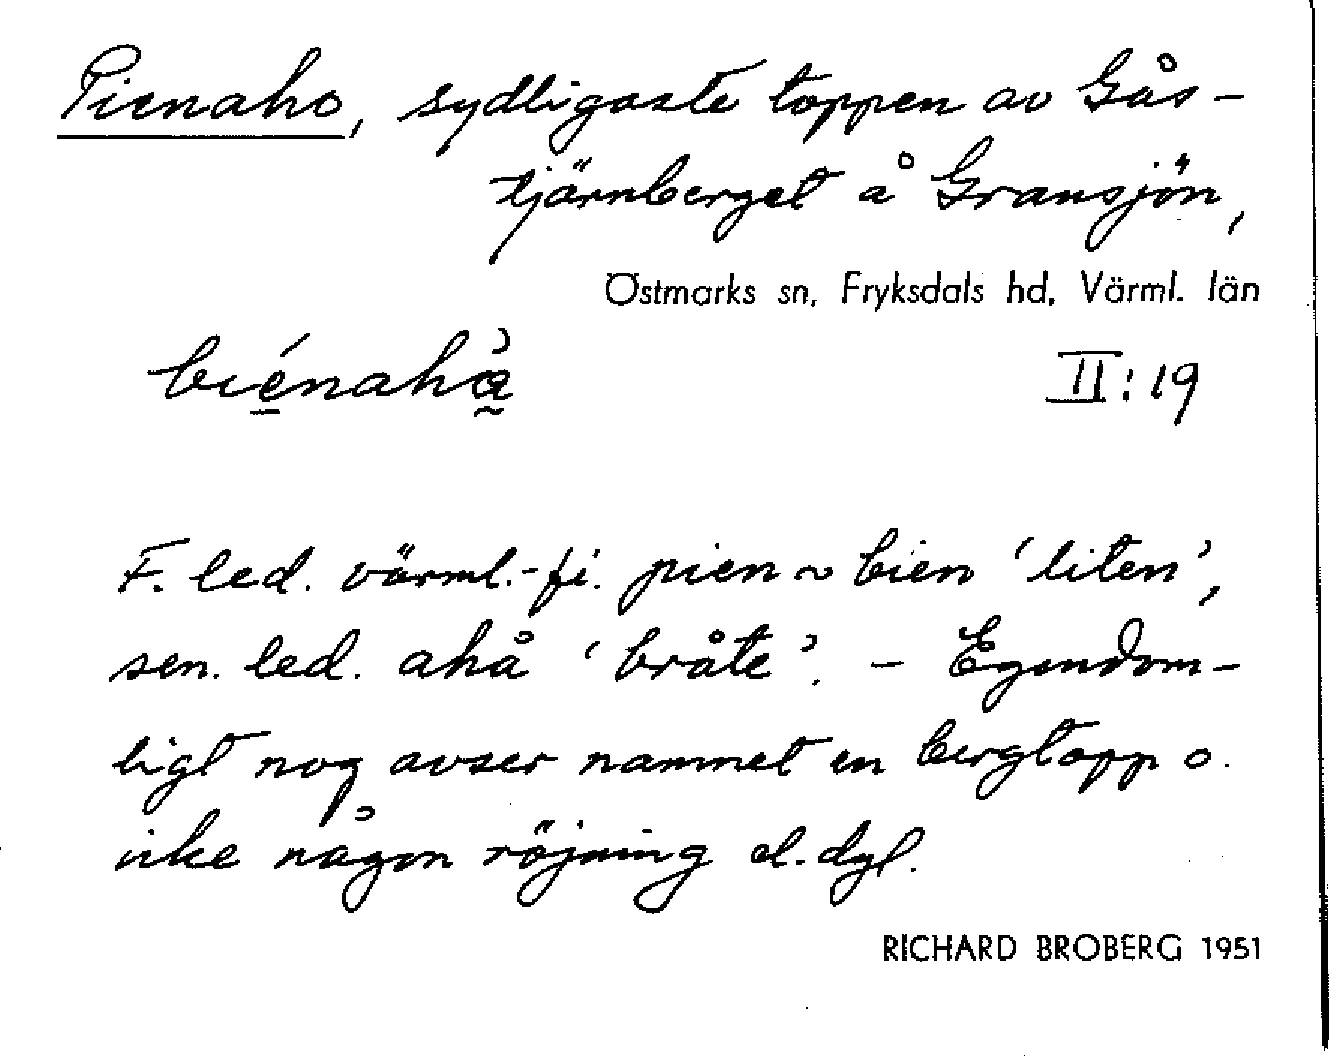 Pienaho, sydligaste toppen av Gås-
tjärnberget å Gransjön,
Östmarks sn, Fryksdals hd, Värml. län
biénahå̀ II:19
F. led. värml.-fi. pien ~ bien 'liten',
sen. led. ahå 'bråte'. - Egendom-
ligt nog avser namnet en bergtopp o.
icke någon röjning el. dyl.
RICHARD BROBERG 1951